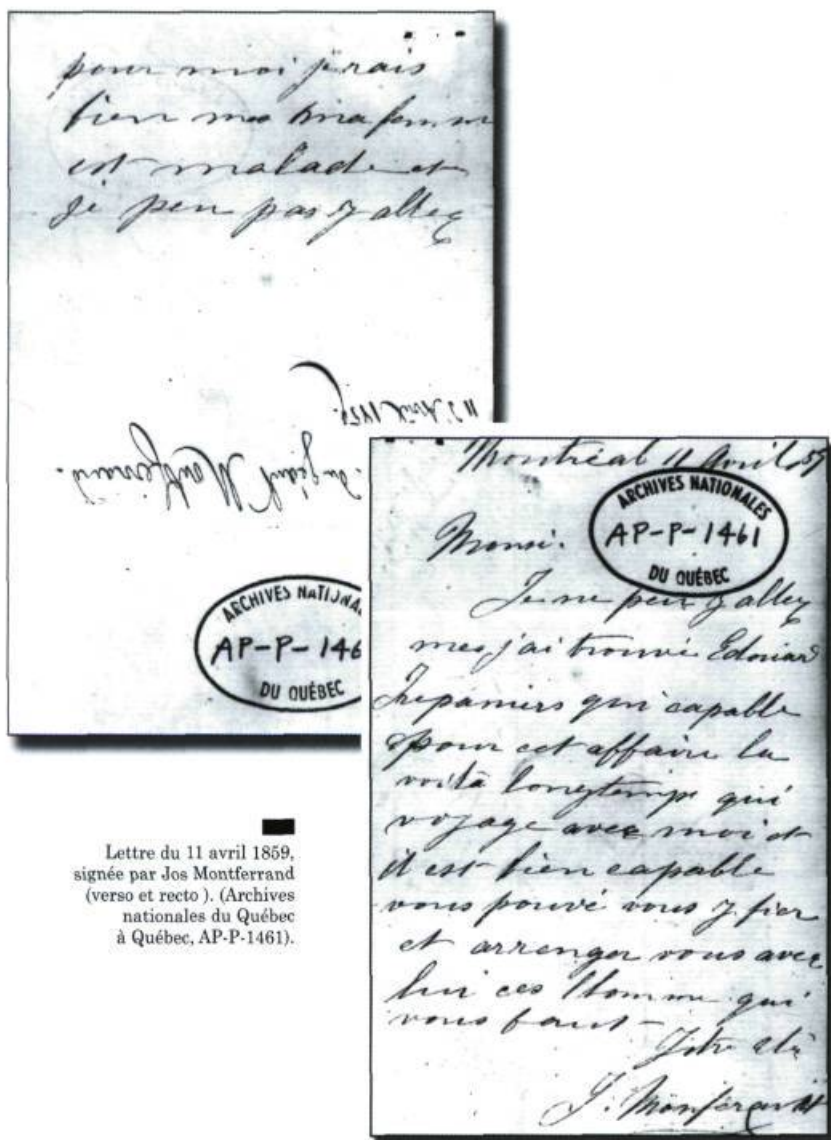 pour moi j'irais
bien mes ma femme
est malade et
je peu pas y allez
11 Avril 1859.
du géant Montferrand.
ARCHIVES NATIONA
AP-P-146
DU QUÉBEC
Montréal 11 Avril 59
ARCHIVES NATIONALES
AP-P-1461
DU QUÉBEC
Monsi.
Je ne peu y allez
mes j'ai trouvé Edouard
Trepaniers qui capable
pour cet affaire la
voilà longtemp qui
voyage avec moi et
il est bien capable
vous pouvé vous y fier
et arrenger vous avec
lui ces l'homme qui
vous faut
Votre
J. Monferrant
Lettre du 11 avril 1859,
signée par Jos Montferrand
(verso et recto ). (Archives
nationales du Québec
à Québec, AP-P-1461).